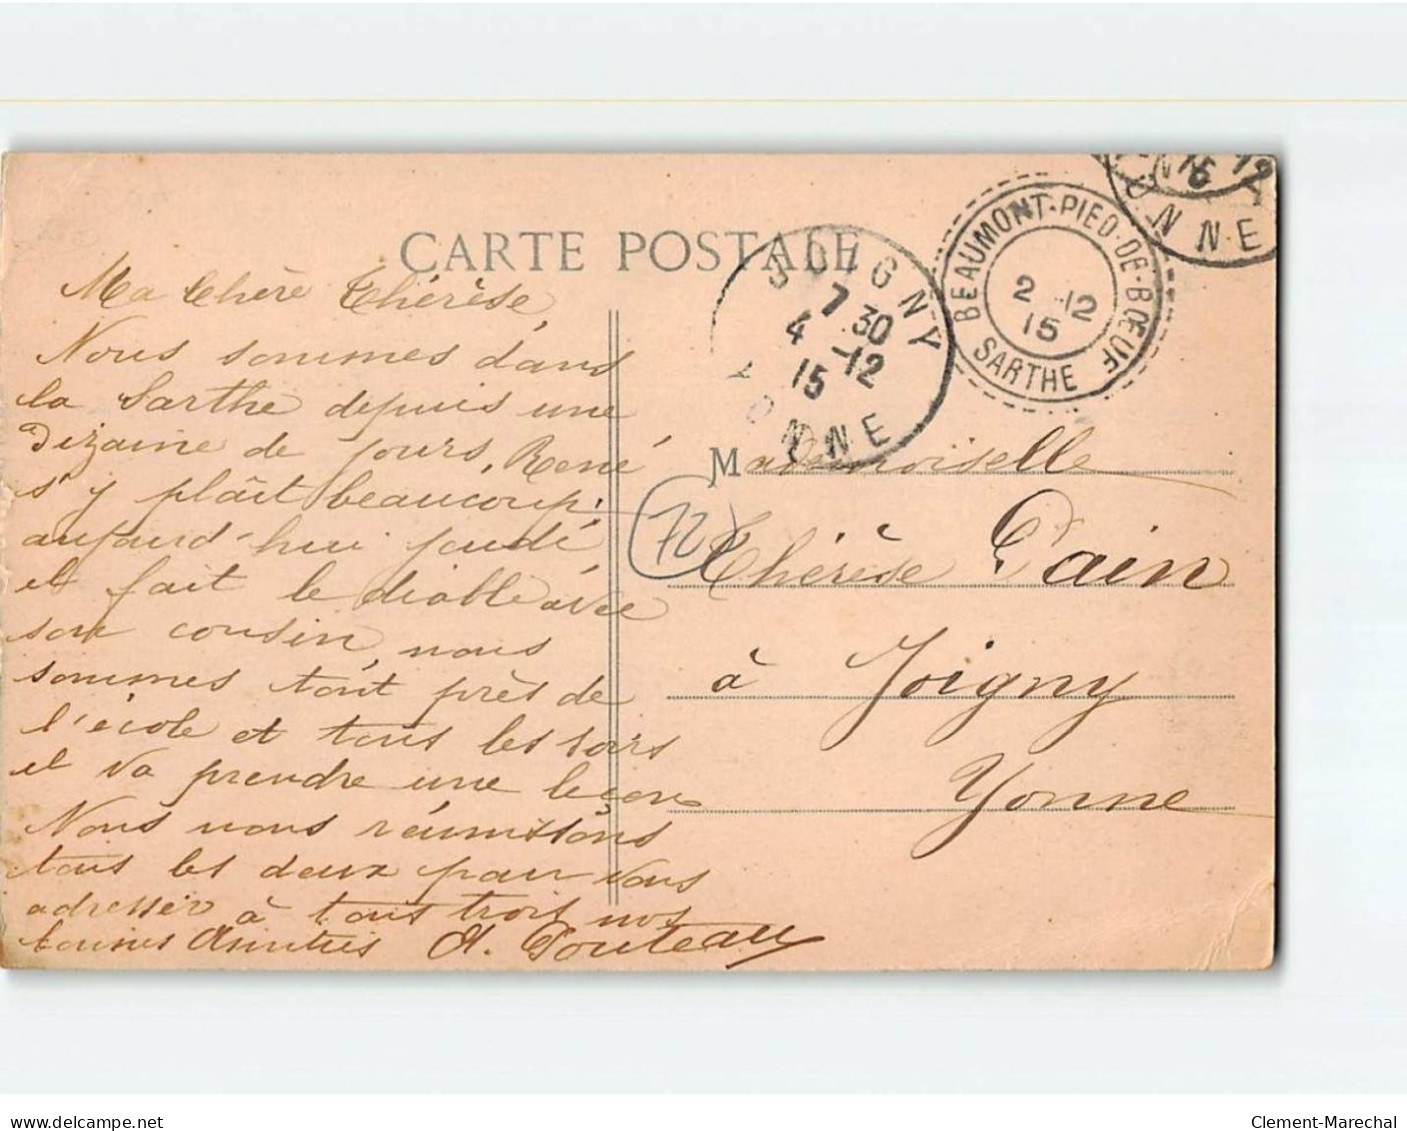 CARTE POSTALE
Ma Chère Thérèse
Nous sommes dans
la Sarthe depuis une
dizaine de jours, René
s'y plaît beaucoup.
aujourd'hui jeudi
il fait le diable avec
son cousin nous
sommes tout près de
l'école et tous les soirs
il va prendre une leçon
Nous nous réunissons
tous les deux pour vous
adresser à tous trois nos
bonnes Amitiés A. Pouteau
JOIGNY
7 30
4 -12
15
YONNE
BEAUMONT-PIED-DE-BŒUF
2 -12
15
SARTHE
12
15
NNE
72
Mademoiselle
Thérèse Pain
à Joigny
Yonne
Clement-Marechal